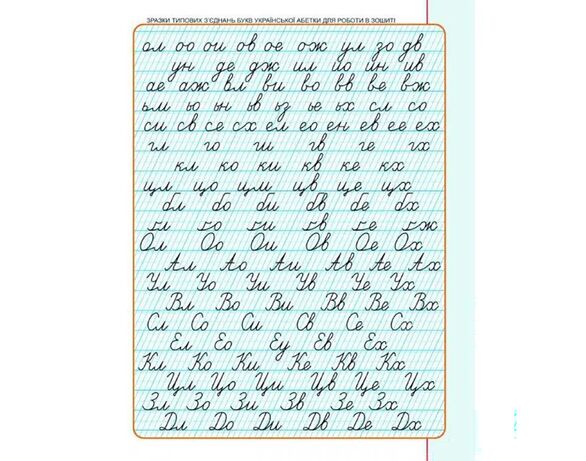 ЗРАЗКИ ТИПОВИХ З'ЄДНАНЬ БУКВ УКРАЇНСЬКОЇ АБЕТКИ ДЛЯ РОБОТИ В ЗОШИТІ
ол оо ои ов ое ож ул зо дв
ун де дж ил ио ин ив
ае аж вл ви во вв ве вж
ьм ьо ьн ьв ьз ье ьх сл со
си св се сх ел ео ен ев ее ех
гл го ги гв ге гх
кл ко ки кв ке кх
цл цо ци цв це цх
бл бо би бв бе бх
ґл ґо ґи ґв ґе ґж
Ол Оо Ои Ов Ое Ох
Ал Ао Аи Ав Ае Ах
Ул Уо Уи Ув Уе Ух
Вл Во Ви Вв Ве Вх
Сл Со Си Св Се Сх
Ел Ео Еу Ев Ех
Кл Ко Ки Ке Кв Кх
Цл Цо Ци Цв Це Цх
Зл Зо Зи Зв Зе Зх
Дл До Ди Дв Де Дх